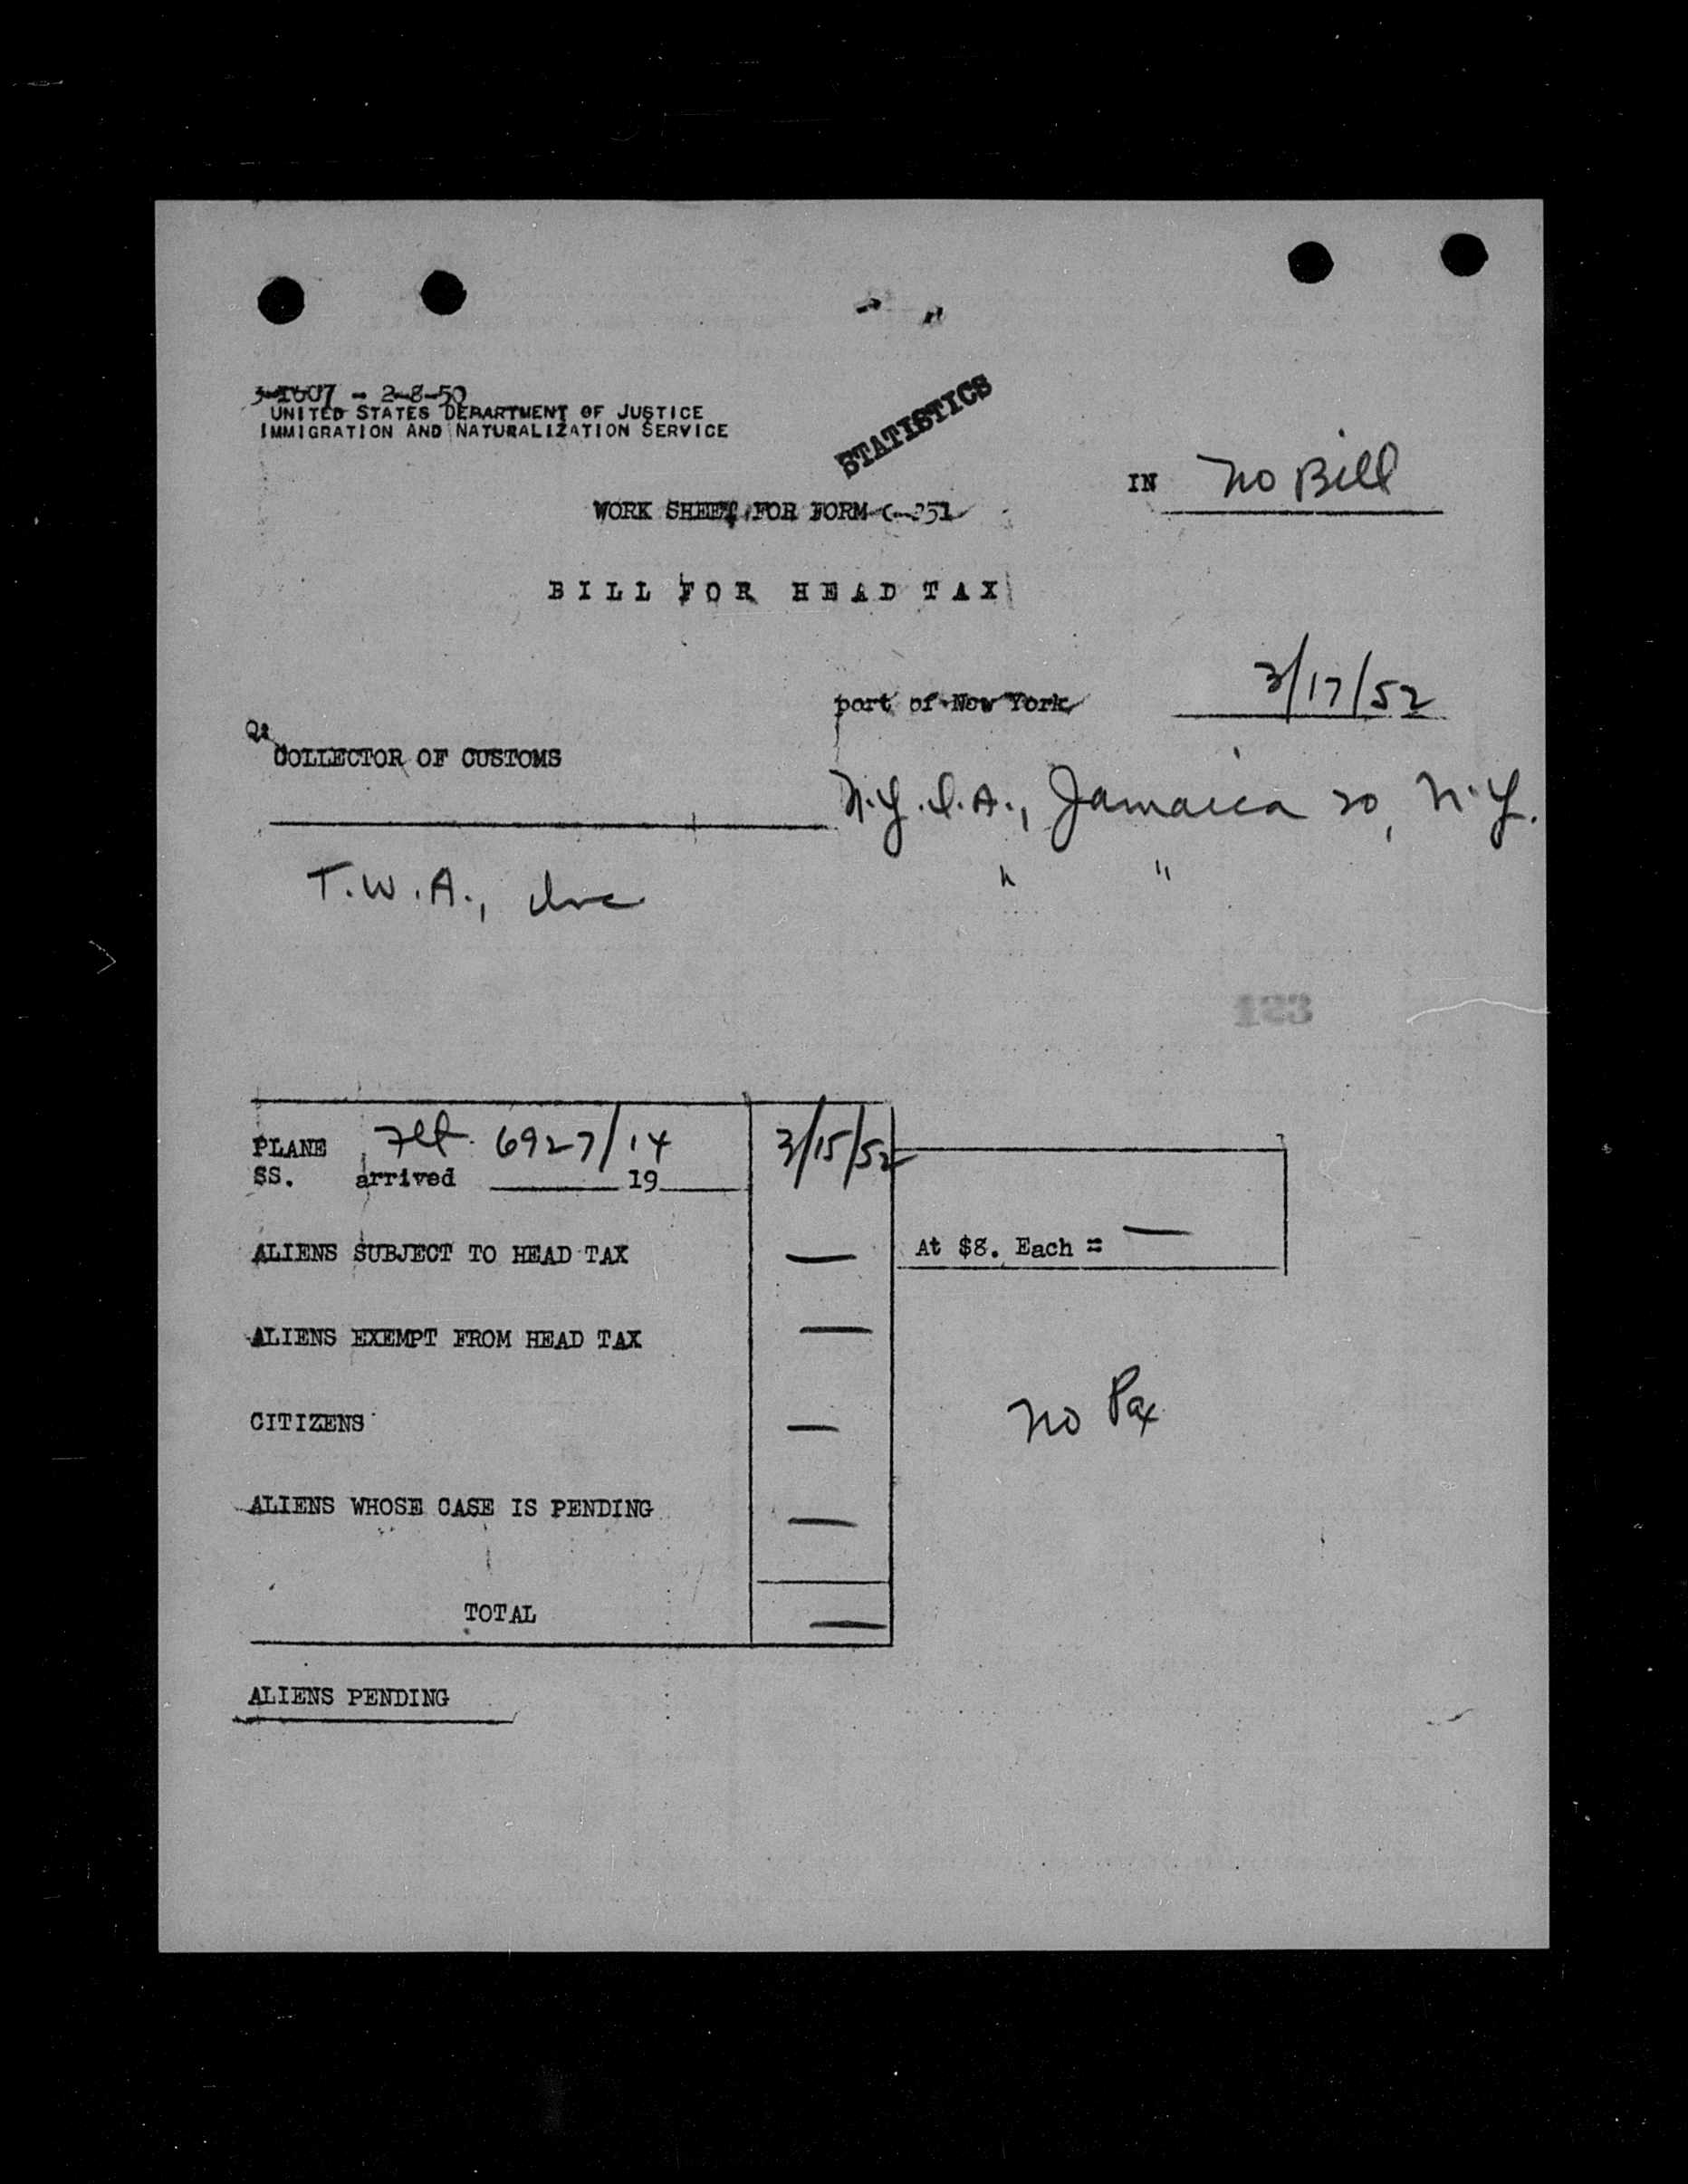 3-1607 - 2-8-50
UNITED STATES DEPARTMENT OF JUSTICE
IMMIGRATION AND NATURALIZATION SERVICE
STATISTICS
IN No Bill
WORK SHEET FOR FORM C-251
BILL FOR HEAD TAX
port of New York 3/17/52
COLLECTOR OF CUSTOMS
N.Y.I.A., Jamaica 20, N.Y.
T.W.A., Inc " "
123
PLANE Flt. 6927/14 3/15/52
SS. arrived 19
ALIENS SUBJECT TO HEAD TAX — At $8. Each = —
ALIENS EXEMPT FROM HEAD TAX —
CITIZENS — No Pax
ALIENS WHOSE CASE IS PENDING —
TOTAL —
ALIENS PENDING